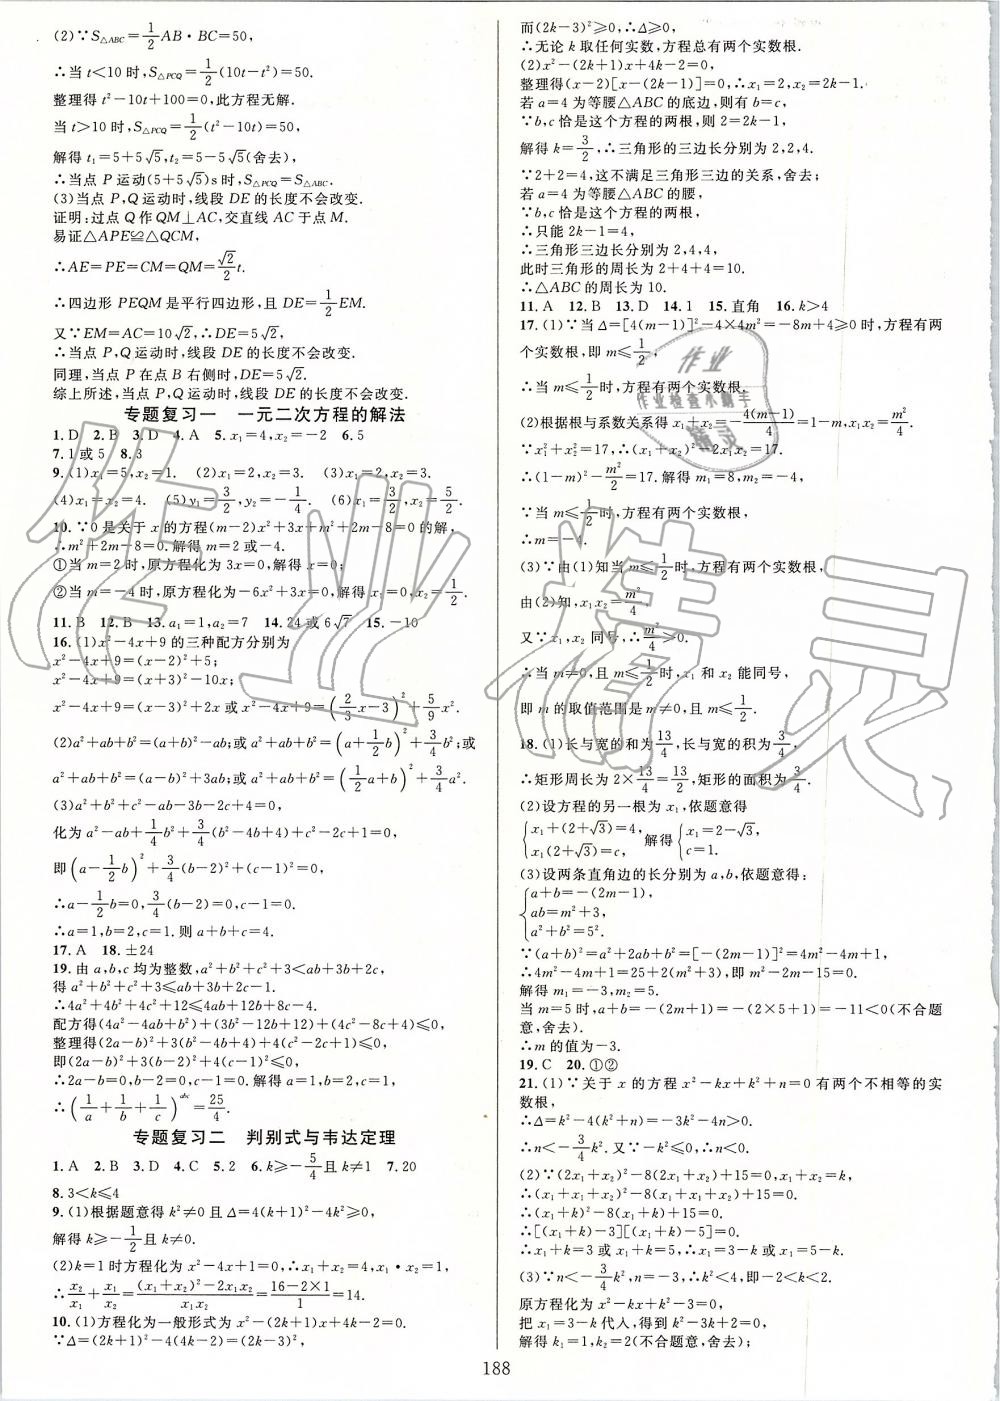 (2)∵S△ABC=1/2AB·BC=50,
∴当t<10时,S△PCQ=1/2(10t-t²)=50.
整理得t²-10t+100=0,此方程无解.
当t>10时,S△PCQ=1/2(t²-10t)=50,
解得t₁=5+5√5,t₂=5-5√5(舍去),
∴当点P运动(5+5√5)s时,S△PCQ=S△ABC.
(3)当点P,Q运动时,线段DE的长度不会改变.
证明:过点Q作QM⊥AC,交直线AC于点M.
易证△APE≌△QCM,
∴AE=PE=CM=QM=√2/2t.
∴四边形PEQM是平行四边形,且DE=1/2EM.
又∵EM=AC=10√2,∴DE=5√2.
∴当点P,Q运动时,线段DE的长度不会改变.
同理,当点P在点B右侧时,DE=5√2.
综上所述,当点P,Q运动时,线段DE的长度不会改变.
专题复习一 一元二次方程的解法
1.D 2.B 3.D 4.A 5.x₁=4,x₂=-2 6.5
7.1或5 8.3
9.(1)x₁=5,x₂=1. (2)x₁=2,x₂=3. (3)x₁=2,x₂=3.
(4)x₁=x₂=4. (5)y₁=3/2,y₂=-1/2. (6)x₁=3/2,x₂=5/2.
10.∵0是关于x的方程(m-2)x²+3x+m²+2m-8=0的解,
∴m²+2m-8=0.解得m=2或-4.
①当m=2时,原方程化为3x=0,解得x=0;
②当m=-4时,原方程化为-6x²+3x=0,解得x₁=0,x₂=1/2.
11.B 12.B 13.a₁=1,a₂=7 14.24或6√7 15.-10
16.(1)x²-4x+9的三种配方分别为
x²-4x+9=(x-2)²+5;
x²-4x+9=(x-3)²-10x;
x²-4x+9=(x-3)²+2x或x²-4x+9=(2/3x-3)²+5/9x².
(2)a²+ab+b²=(a+b)²-ab;或a²+ab+b²=(a+1/2b)²+3/4b²;或
a²+ab+b²=(a-b)²+3ab;或a²+ab+b²=(1/2a+b)²+3/4a².
(3)a²+b²+c²-ab-3b-2c+4=0,
化为a²-ab+1/4b²+3/4(b²-4b+4)+c²-2c+1=0,
即(a-1/2b)²+3/4(b-2)²+(c-1)²=0.
∴a-1/2b=0,3/4(b-2)=0,c-1=0.
∴a=1,b=2,c=1.则a+b+c=4.
17.A 18.±24
19.由a,b,c均为整数,a²+b²+c²+3<ab+3b+2c,
得a²+b²+c²+3≤ab+3b+2c-1.
∴4a²+4b²+4c²+12≤4ab+12b+8c-4.
配方得(4a²-4ab+b²)+(3b²-12b+12)+(4c²-8c+4)≤0,
整理得(2a-b)²+3(b²-4b+4)+4(c²-2c+1)≤0,
即(2a-b)²+3(b-2)²+4(c-1)²≤0.
∴2a-b=0,b-2=0,c-1=0.解得a=1,b=2,c=1.
∴(1/a+1/b+1/c)^abc=25/4.
专题复习二 判别式与韦达定理
1.A 2.B 3.D 4.C 5.2 6.k≥-5/4且k≠1 7.20
8.3<k≤4
9.(1)根据题意得k²≠0且Δ=4(k+1)²-4k²≥0,
解得k≥-1/2且k≠0.
(2)k=1时方程化为x²-4x+1=0,∴x₁+x₂=4,x₁·x₂=1,
∴x₂/x₁+x₁/x₂=(x₁+x₂)²-2x₁x₂/x₁x₂=16-2×1/1=14.
10.(1)方程化为一般形式为x²-(2k+1)x+4k-2=0.
∵Δ=(2k+1)²-4(4k-2)=(2k-3)²,
而(2k-3)²≥0,∴Δ≥0.
∴无论k取任何实数,方程总有两个实数根.
(2)x²-(2k+1)x+4k-2=0,
整理得(x-2)[x-(2k-1)]=0,∴x₁=2,x₂=2k-1.
若a=4为等腰△ABC的底边,则有b=c,
∵b,c恰是这个方程的两根,则2=2k-1,
解得k=3/2,∴三角形的三边长分别为2,2,4.
∵2+2=4,这不满足三角形三边的关系,舍去;
若a=4为等腰△ABC的腰,
∵b,c恰是这个方程的两根,
∴只能2k-1=4,
∴三角形三边长分别为2,4,4,
此时三角形的周长为2+4+4=10.
∴△ABC的周长为10.
11.A 12.B 13.D 14.1 15.直角 16.k>4
17.(1)∵当Δ=[4(m-1)]²-4×4m²=-8m+4≥0时,方程有两
个实数根,即m≤1/2,
∴当m≤1/2时,方程有两个实数根.
(2)根据根与系数关系得x₁+x₂=-4(m-1)/4=1-m,x₁x₂=m²/4
∵x₁²+x₂²=17,∴(x₁+x₂)²-2x₁x₂=17,
∴(1-m)²-m²/2=17.解得m₁=8,m₂=-4.
∵当m≤1/2时,方程有两个实数根,
∴m=-4.
(3)∵由(1)知当m≤1/2时,方程有两个实数根,
由(2)知,x₁x₂=m²/4
又∵x₁,x₂同号,∴m²/4>0.
∴当m≤1/2时,x₁和x₂能同号,
即m的取值范围是m≠0,且m≤1/2.
18.(1)长与宽的和为13/4,长与宽的面积为3/4,
∴矩形周长为2×13/4=13/2,矩形的面积为3/4.
(2)设方程的另一根为x₁,依题意得
{x₁+(2+√3)=4, x₁(2+√3)=c; 解得{x₁=2-√3, c=1.
(3)设两条直角边的长分别为a,b,依题意得:
a+b=-(2m-1),
ab=m²+3,
a²+b²=5².
∵(a+b)²=a²+2ab+b²=[-(2m-1)]²=4m²-4m+1,
∴4m²-4m+1=25+2(m²+3),即m²-2m-15=0.
解得m₁=-3,m₂=5.
当m=5时,a+b=-(2m+1)=-(2×5+1)=-11<0(不合题
意,舍去).
∴m的值为-3.
19.C 20.①②
21.(1)∵关于x的方程x²-kx+k²+n=0有两个不相等的实
数根,
∴Δ=k²-4(k²+n)=-3k²-4n>0.
∴n<-3/4k².又∵-k²≤0,∴n≤0.
(2)∵(2x₁+x₂)²-8(2x₁+x₂)+15=0,x₁+x₂=k,
∴(x₁+x₁+x₂)²-8(x₁+x₁+x₂)+15=0.
∴(x₁+k)²-8(x₁+k)+15=0.
∴[(x₁+k)-3][(x₁+k)-5]=0.
∴x₁+k=3或x₁+k=5,∴x₁=3-k或x₁=5-k.
(3)∵n<-3/4k²,n=-3,∴k²<4,即-2<k<2.
原方程化为x²-kx+k²-3=0,
把x₁=3-k代入,得到k²-3k+2=0,
解得k₁=1,k₂=2(不合题意,舍去);
188
作业
作业检查小助手
精灵
作业精灵